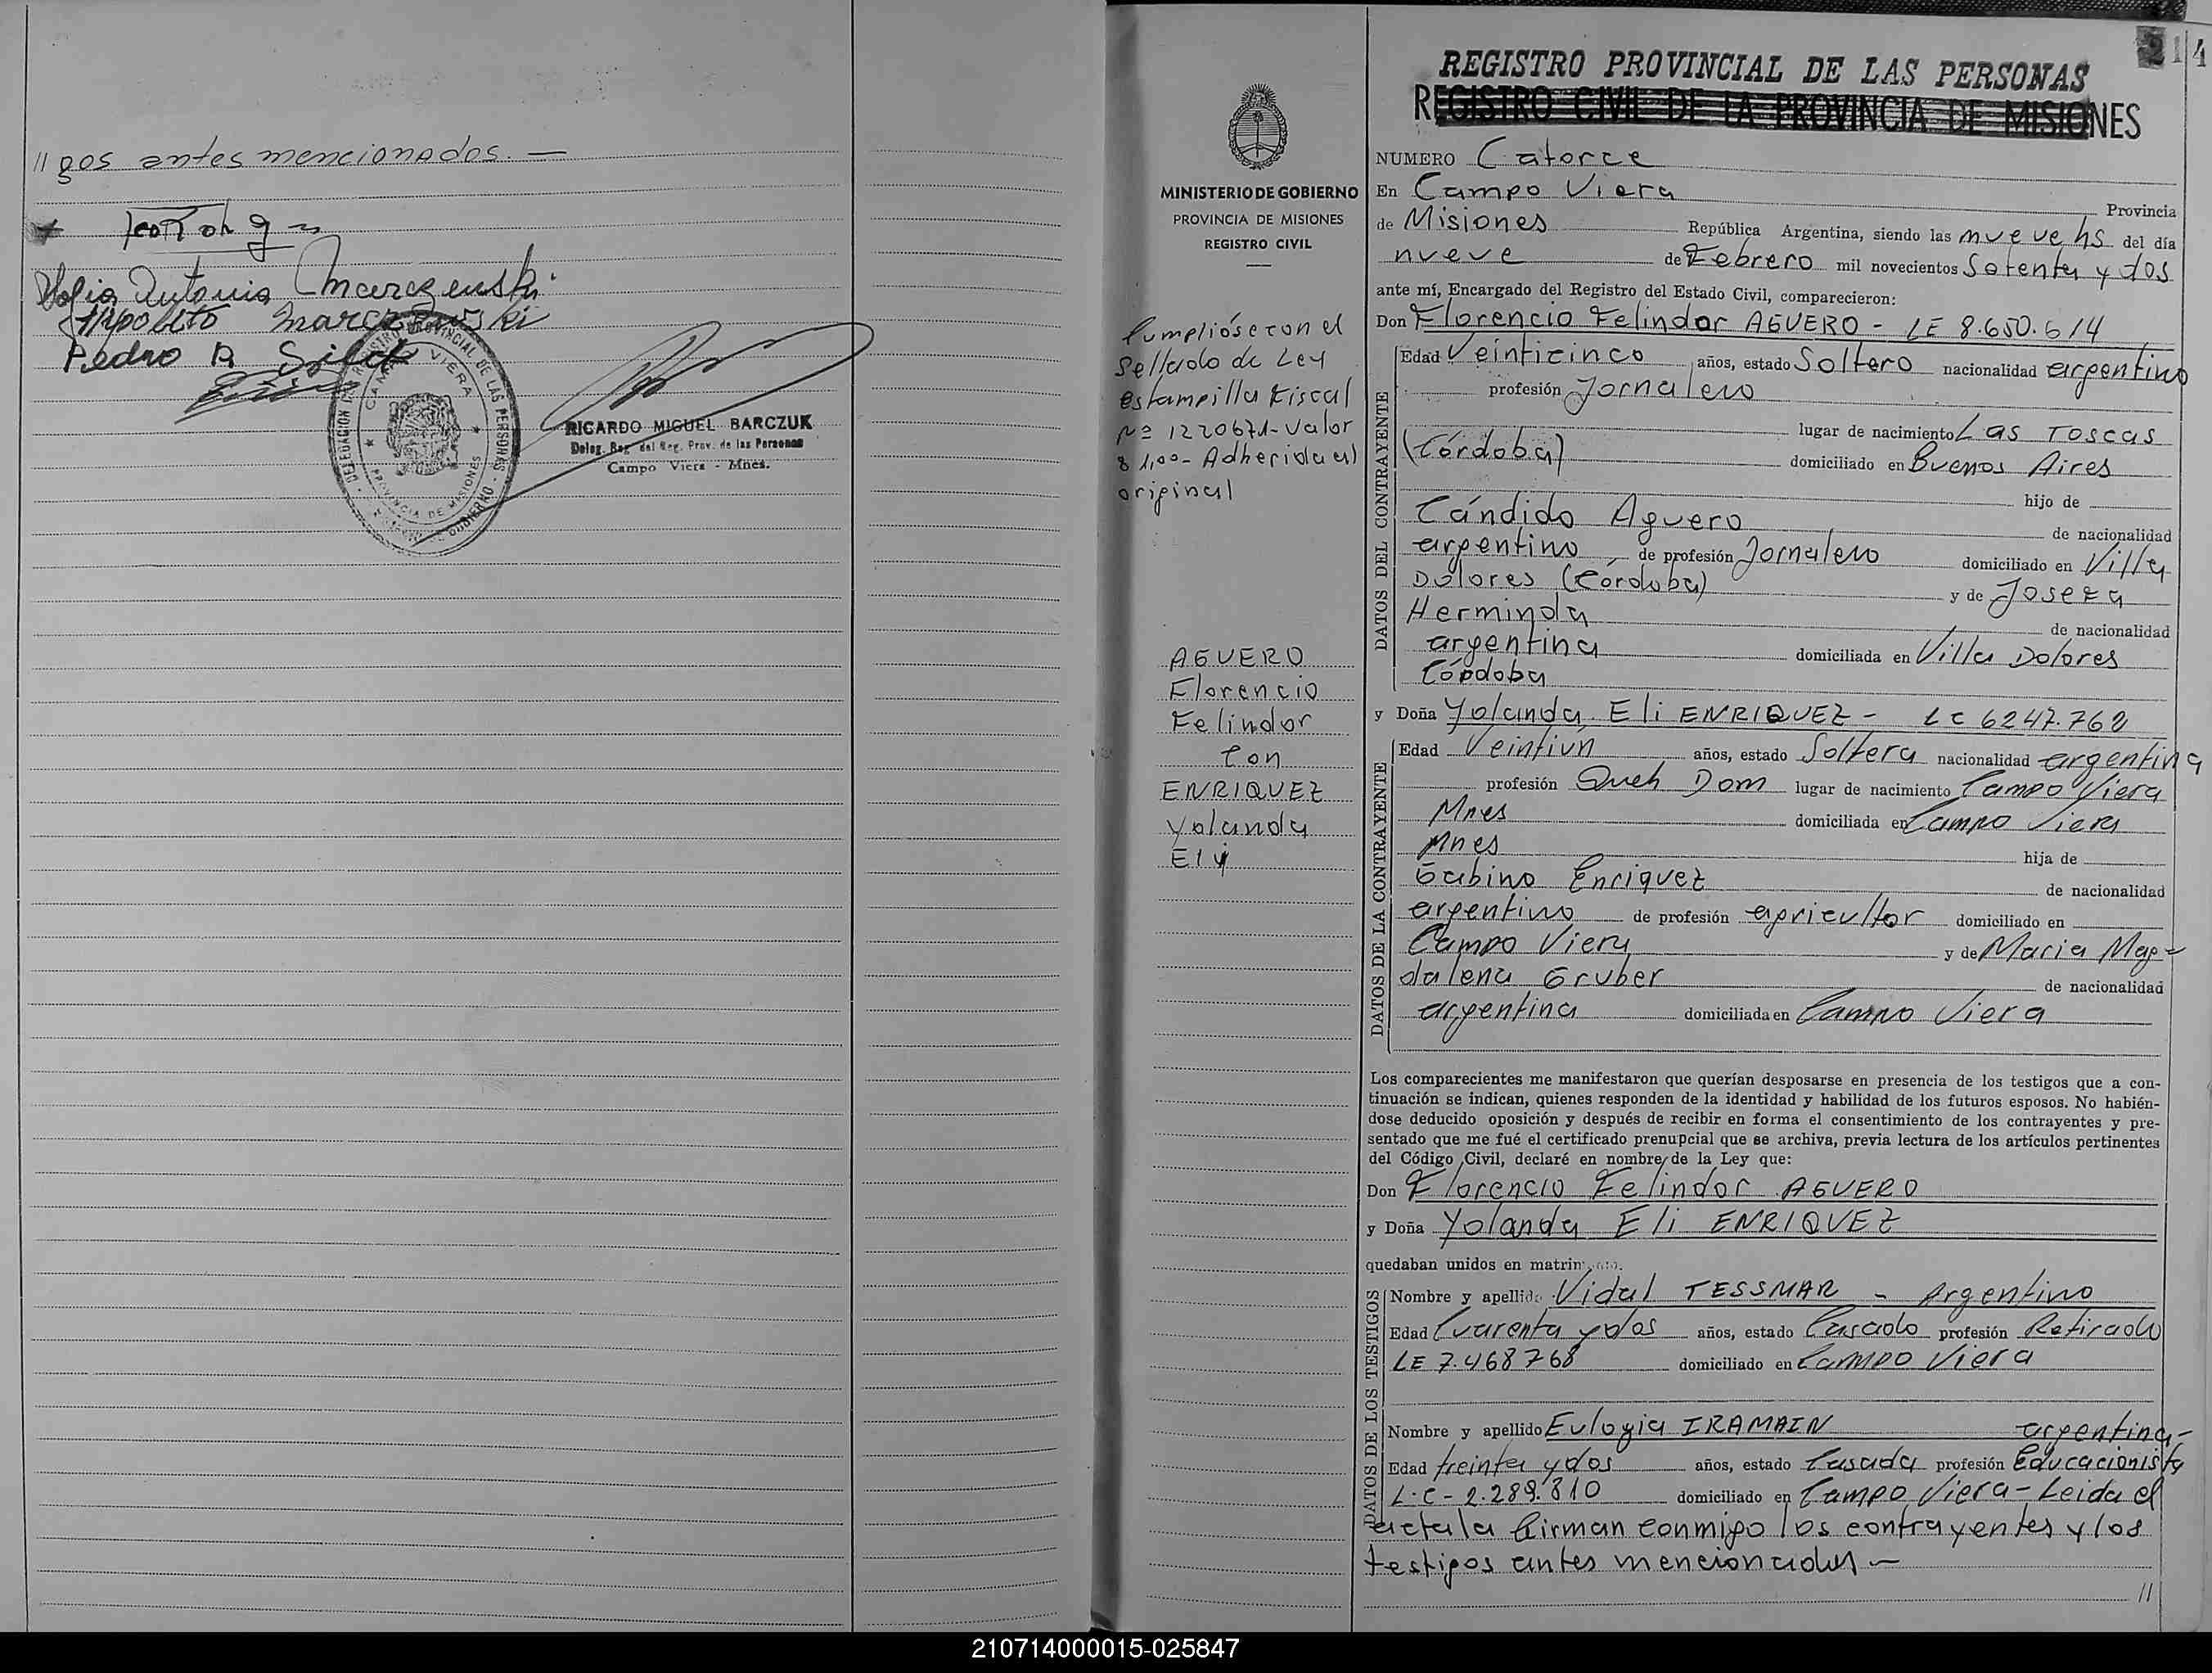 // gos antes mencionados. —
Sofia Antonia Marczeuski
Hipolito Marczeuski
Pedro R Silva
DELEGACION REGISTRO PROVINCIAL DE LAS PERSONAS
CAMPO VIERA
PROVINCIA DE MISIONES
RICARDO MIGUEL BARCZUK
Deleg. Reg. del Reg. Prov. de las Personas
Campo Viera - Mnes.
MINISTERIO DE GOBIERNO
PROVINCIA DE MISIONES
REGISTRO CIVIL
Cumplióse con el
Sellado de Ley
estampilla Fiscal
Nº 1220671-Valor
$ 1,00- Adherida al
original
AGUERO
Florencio
Felindor
Con
ENRIQUEZ
Yolanda
Eli
214
REGISTRO PROVINCIAL DE LAS PERSONAS
REGISTRO CIVIL DE LA PROVINCIA DE MISIONES
NUMERO Catorce
En Campo Viera Provincia
de Misiones República Argentina, siendo las nueve hs del día
nueve de Febrero mil novecientos Setenta y dos
ante mí, Encargado del Registro del Estado Civil, comparecieron:
Don Florencio Felindor AGUERO - LE 8.650.614
DATOS DEL CONTRAYENTE
Edad Veinticinco años, estado Soltero nacionalidad argentino
profesión Jornalero
lugar de nacimiento Las Toscas
(Córdoba) domiciliado en Buenos Aires
hijo de
Cándido Aguero de nacionalidad
argentino de profesión Jornalero domiciliado en Villa
Dolores (Córdoba) y de Josefa
Herminda de nacionalidad
argentina domiciliada en Villa Dolores
Córdoba
y Doña Yolanda Eli ENRIQUEZ - LC 6247.762
DATOS DE LA CONTRAYENTE
Edad Veintiún años, estado Soltera nacionalidad argentina
profesión Queh Dom lugar de nacimiento Campo Viera
Mnes domiciliada en Campo Viera
Mnes hija de
Gabino Enriquez de nacionalidad
argentino de profesión agricultor domiciliado en
Campo Viera y de Maria Mag=
dalena Gruber de nacionalidad
argentina domiciliada en Campo Viera
Los comparecientes me manifestaron que querían desposarse en presencia de los testigos que a con-
tinuación se indican, quienes responden de la identidad y habilidad de los futuros esposos. No habién-
dose deducido oposición y después de recibir en forma el consentimiento de los contrayentes y pre-
sentado que me fué el certificado prenupcial que se archiva, previa lectura de los artículos pertinentes
del Código Civil, declaré en nombre de la Ley que:
Don Florencio Felindor AGUERO
y Doña Yolanda Eli ENRIQUEZ
quedaban unidos en matrimonio.
DATOS DE LOS TESTIGOS
Nombre y apellido Vidal TESSMAR - Argentino
Edad Cuarenta y dos años, estado Casado profesión Retirado
LE 7.468768 domiciliado en Campo Viera
Nombre y apellido Eulogia IRAMAIN argentina-
Edad treinta y dos años, estado Casada profesión Educacionista
L.C - 2.289.810 domiciliado en Campo Viera - Leida el
acta la firman conmigo los contrayentes y los
testigos antes mencionados —
//
210714000015-025847